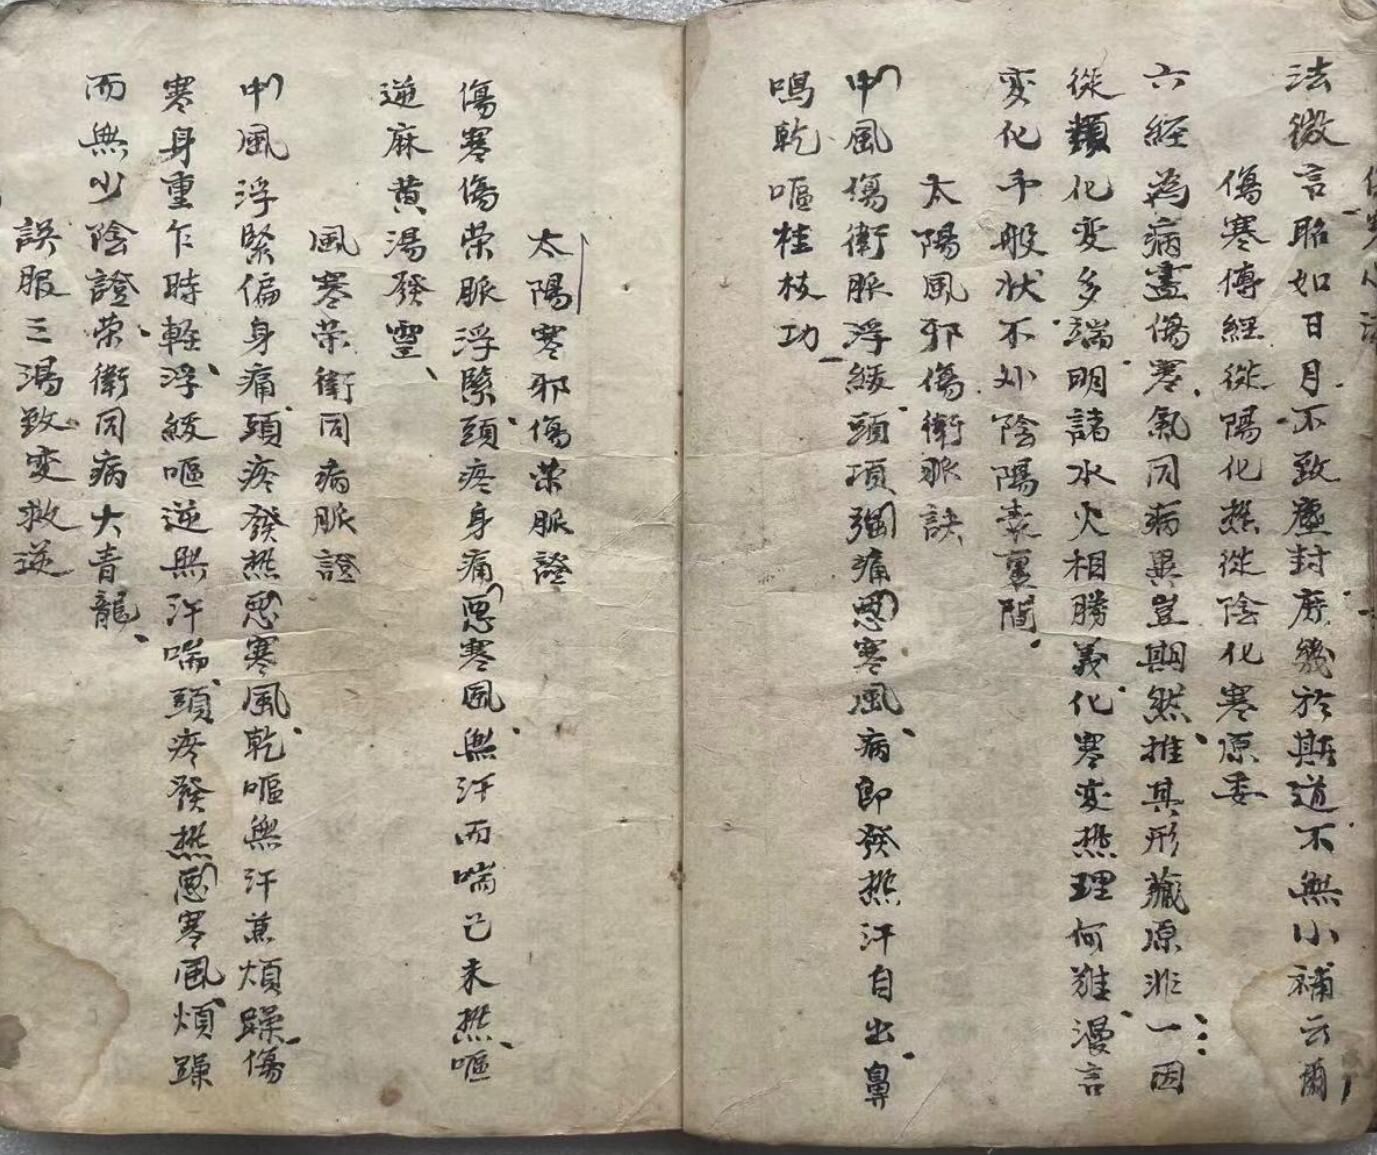 法微言昭如日月不致塵封庶幾於斯道不無小補云爾
傷寒傳經從陽化热從陰化寒原委
六經為病盡傷寒氣同病異豈期然推其形藏原非一因
從類化变多端明諸水火相勝義化寒变热理何難漫言
变化千般状不外陰陽表裏間
太陽風邪傷衛脈訣
中風傷衛脈浮緩頭項强痛恶寒風病即發热汗自出鼻
鳴乾嘔桂枝功
太陽寒邪傷荣脈證
傷寒傷荣脈浮緊頭疼身痛恶寒風無汗而喘已未热嘔
逆麻黄湯發靈
風寒荣衛同病脈證
中風浮緊偏身痛頭疼發热恶寒風乾嘔無汗兼煩躁傷
寒身重乍時輕浮緩嘔逆無汗喘頭疼發热恶寒風煩躁
而無少陰證荣衛同病大青龍
誤服三湯致变救逆